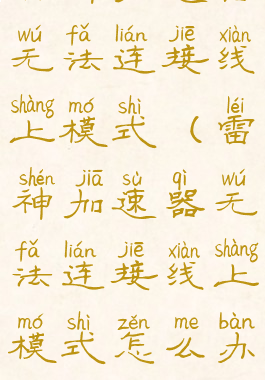 wú fǎ lián jiē xiàn
无法连接线
shàng mó shì léi
上模式（雷
shén jiā sù qì wú
神加速器无
fǎ lián jiē xiàn shàng
法连接线上
mó shì zěn me bàn
模式怎么办